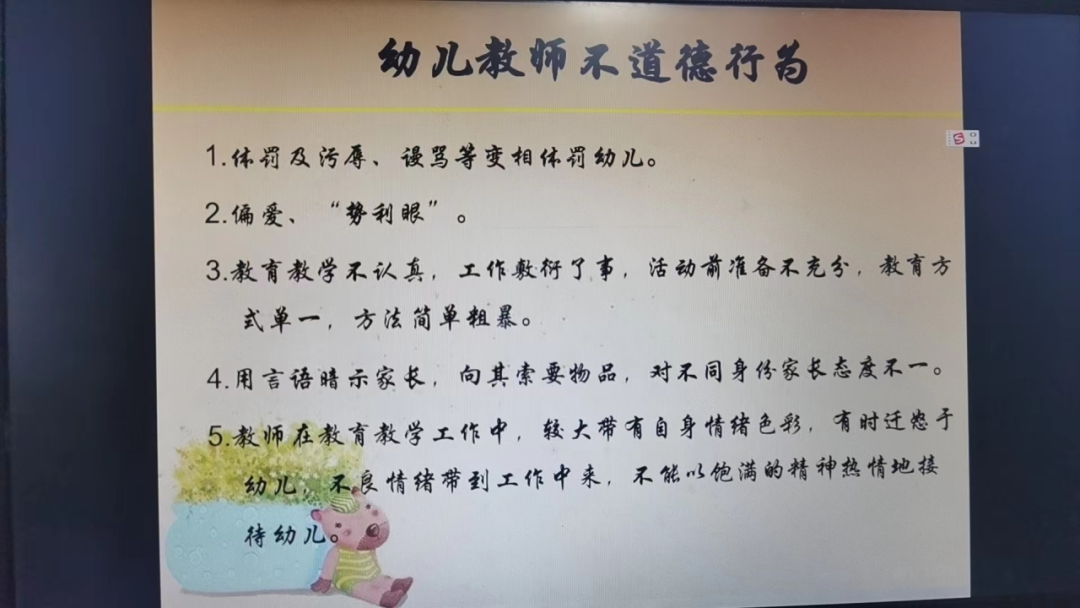 幼儿教师不道德行为
1.体罚及污辱、谩骂等变相体罚幼儿。
2.偏爱、“势利眼”。
3.教育教学不认真，工作敷衍了事，活动前准备不充分，教育方
式单一，方法简单粗暴。
4.用言语暗示家长，向其索要物品，对不同身份家长态度不一。
5.教师在教育教学工作中，较大带有自身情绪色彩，有时迁怒于
幼儿，不良情绪带到工作中来，不能以饱满的精神热情地接
待幼儿。